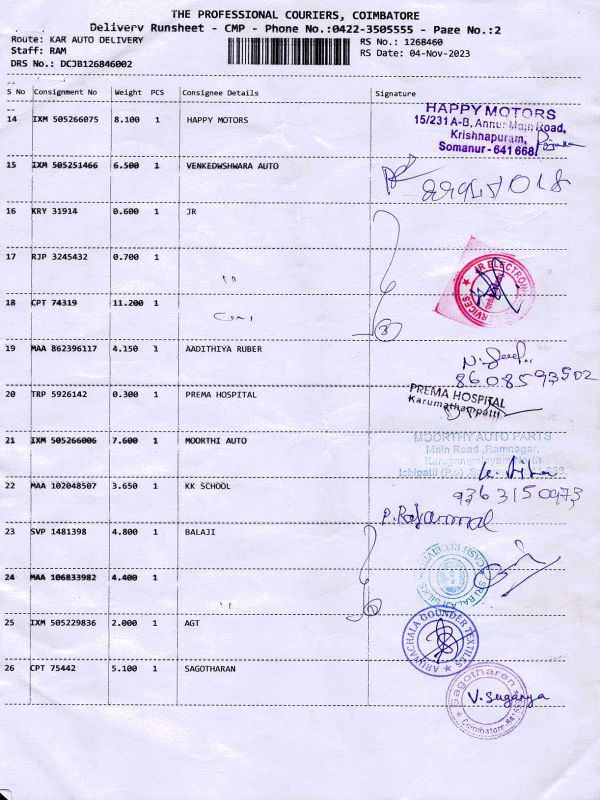 THE PROFESSIONAL COURIERS, COIMBATORE
Delivery Runsheet - CMP - Phone No.:0422-3505555 - Page No.:2
Route: KAR AUTO DELIVERY RS No.: 1268460
Staff: RAM RS Date: 04-Nov-2023
DRS No.: DCJB126846002
S No Consignment No Weight PCS Consignee Details Signature
14 IXM 505266075 8.100 1 HAPPY MOTORS
HAPPY MOTORS
15/231 A-B, Annur Main Road,
Krishnapuram,
Somanur - 641 668
15 IXM 505251466 6.500 1 VENKEDWSHWARA AUTO
16 KRY 31914 0.600 1 JR
17 RJP 3245432 0.700 1 "
JR ELECTRON
RVICES
18 CPT 74319 11.200 1
3
19 MAA 862396117 4.150 1 AADITHIYA RUBER
8608593502
20 TRP 5926142 0.300 1 PREMA HOSPITAL
PREMA HOSPITAL
Karumathampatti
21 IXM 505266006 7.600 1 MOORTHI AUTO
MOORTHY AUTO PARTS
Main Road, Ramnagar,
22 MAA 102048507 3.650 1 KK SCHOOL
9363150973
P. Rajammal
23 SVP 1481398 4.800 1 BALAJI
24 MAA 106833982 4.400 1 "
SRI BALAJI SILKS
25 IXM 505229836 2.000 1 AGT
ARUNACHALA GOUNDER TEXTILES
26 CPT 75442 5.100 1 SAGOTHARAN
Sagotharan
V. Suganya
Coimbatore-641